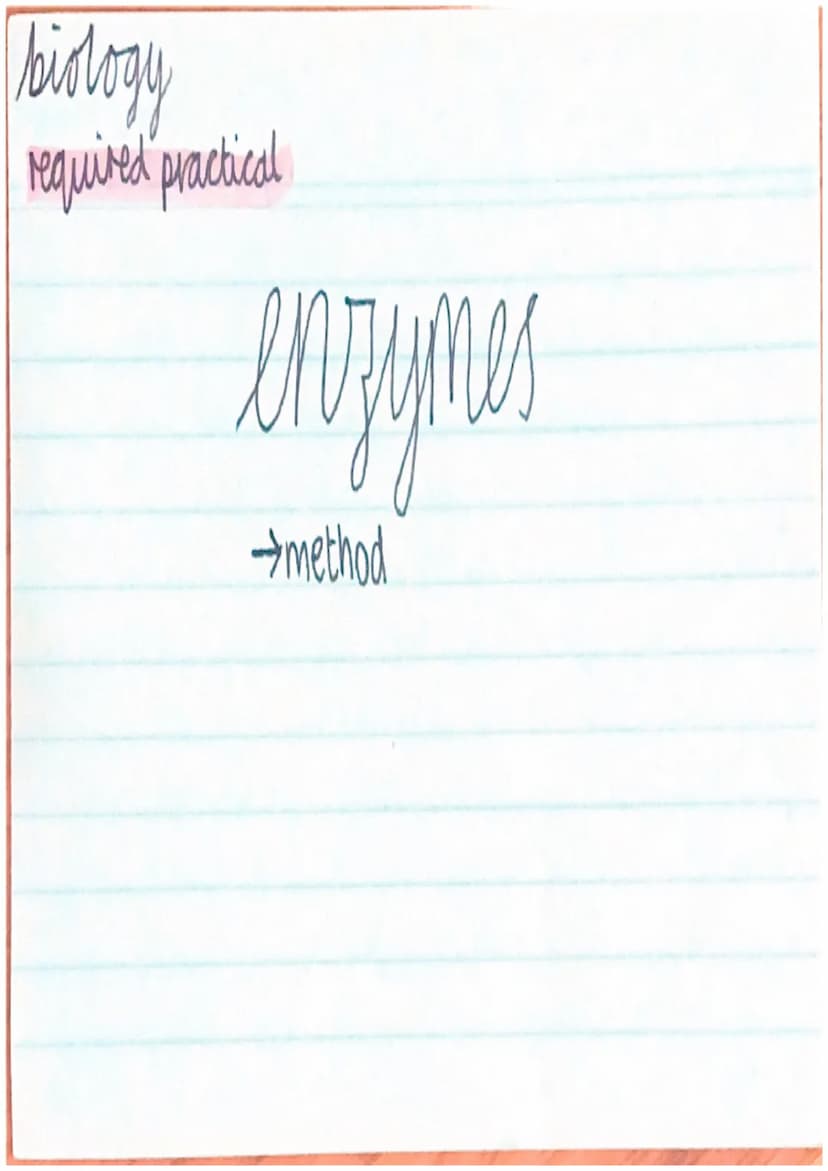 biology
required practical
enzymes
→method